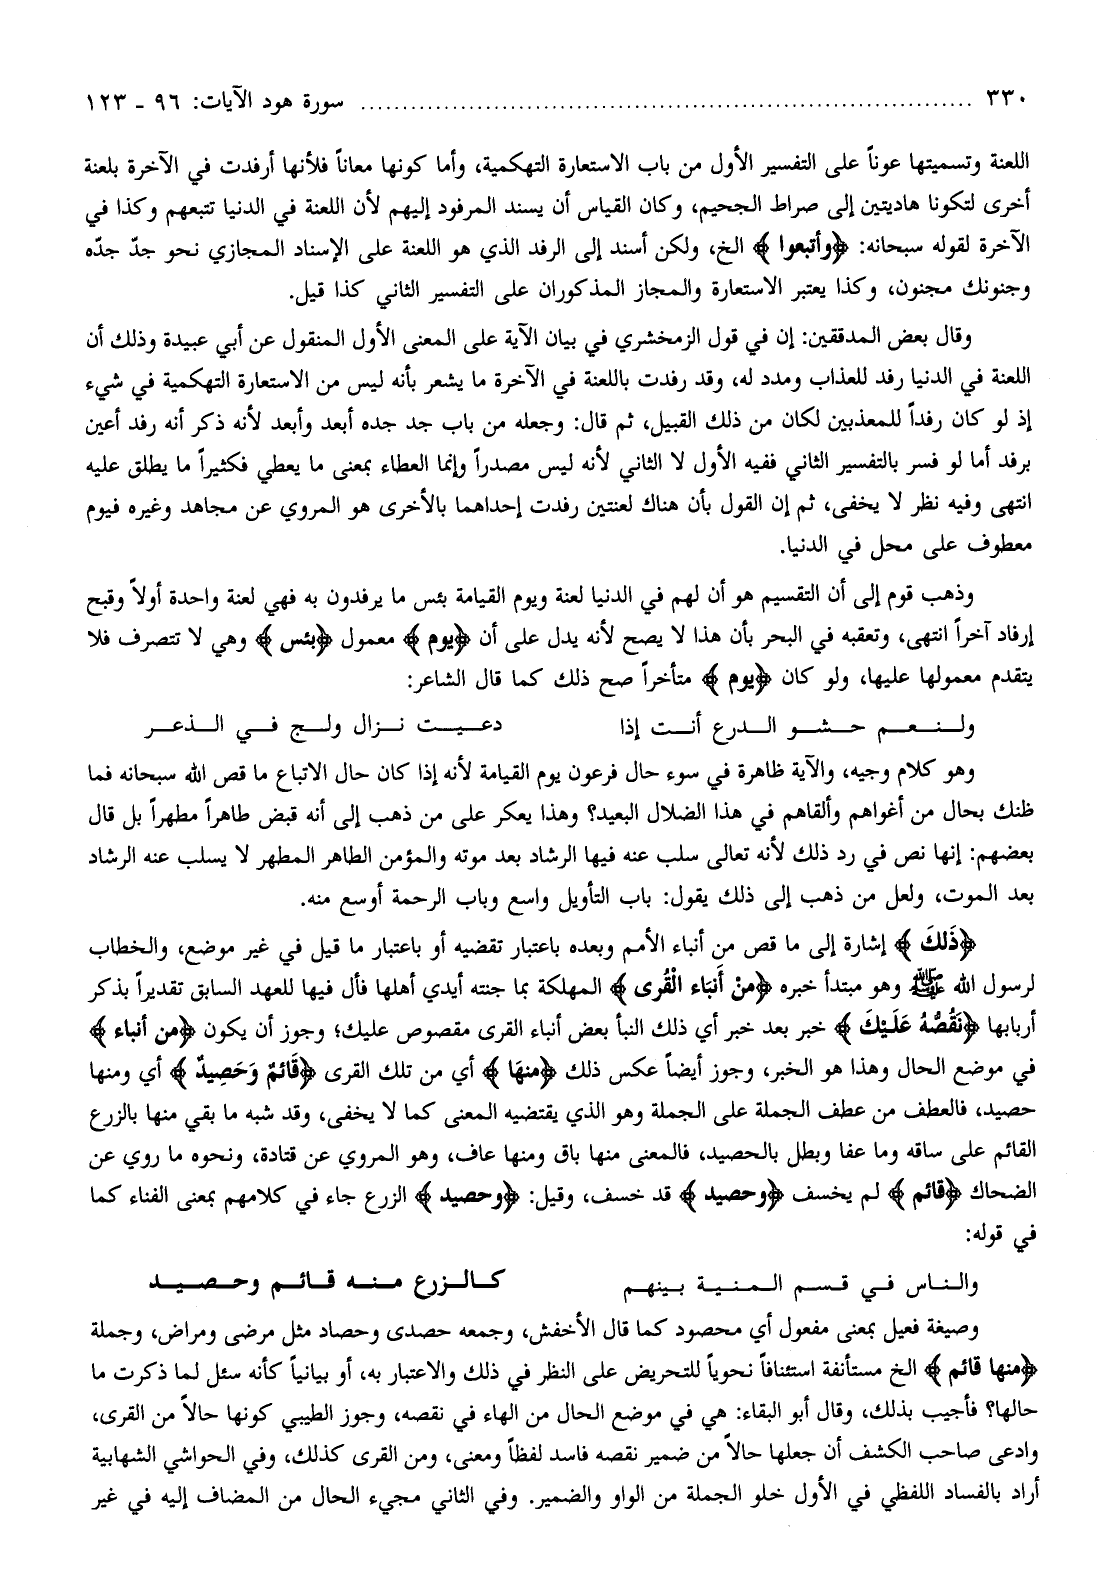 ٣٣٠ ........................................................................ سورة هود الآيات: ٩٦ ـ ١٢٣
اللعنة وتسميتها عوناً على التفسير الأول من باب الاستعارة التهكمية، وأما كونها معاناً فلأنها أرفدت في الآخرة بلعنة
أخرى لتكونا هاديتين إلى صراط الجحيم، وكان القياس أن يسند المرفود إليهم لأن اللعنة في الدنيا تتبعهم وكذا في
الآخرة لقوله سبحانه: ﴿وأتبعوا﴾ الخ، ولكن أسند إلى الرفد الذي هو اللعنة على الإسناد المجازي نحو جدّ جدّه
وجنونك مجنون، وكذا يعتبر الاستعارة والمجاز المذكوران على التفسير الثاني كذا قيل.
وقال بعض المدققين: إن في قول الزمخشري في بيان الآية على المعنى الأول المنقول عن أبي عبيدة وذلك أن
اللعنة في الدنيا رفد للعذاب ومدد له، وقد رفدت باللعنة في الآخرة ما يشعر بأنه ليس من الاستعارة التهكمية في شيء
إذ لو كان رفداً للمعذبين لكان من ذلك القبيل، ثم قال: وجعله من باب جد جده أبعد وأبعد لأنه ذكر أنه رفد أعين
برفد أما لو فسر بالتفسير الثاني ففيه الأول لا الثاني لأنه ليس مصدراً وإنما العطاء بمعنى ما يعطي فكثيراً ما يطلق عليه
انتهى وفيه نظر لا يخفى، ثم إن القول بأن هناك لعنتين رفدت إحداهما بالأخرى هو المروي عن مجاهد وغيره فيوم
معطوف على محل في الدنيا.
وذهب قوم إلى أن التقسيم هو أن لهم في الدنيا لعنة ويوم القيامة بئس ما يرفدون به فهي لعنة واحدة أولاً وقبح
إرفاد آخراً انتهى، وتعقبه في البحر بأن هذا لا يصح لأنه يدل على أن ﴿يوم﴾ معمول ﴿بئس﴾ وهي لا تتصرف فلا
يتقدم معمولها عليها، ولو كان ﴿يوم﴾ متأخراً صح ذلك كما قال الشاعر:
ولنعم حشو الدرع أنت إذا دعيت نزال ولج في الذعر
وهو كلام وجيه، والآية ظاهرة في سوء حال فرعون يوم القيامة لأنه إذا كان حال الاتباع ما قص الله سبحانه فما
ظنك بحال من أغواهم وألقاهم في هذا الضلال البعيد؟ وهذا يعكر على من ذهب إلى أنه قبض طاهراً مطهراً بل قال
بعضهم: إنها نص في رد ذلك لأنه تعالى سلب عنه فيها الرشاد بعد موته والمؤمن الطاهر المطهر لا يسلب عنه الرشاد
بعد الموت، ولعل من ذهب إلى ذلك يقول: باب التأويل واسع وباب الرحمة أوسع منه.
﴿ذَلكَ﴾ إشارة إلى ما قص من أنباء الأمم وبعده باعتبار تقضيه أو باعتبار ما قيل في غير موضع، والخطاب
لرسول الله ﷺ وهو مبتدأ خبره ﴿منْ أَنبَاء الْقُرى﴾ المهلكة بما جنته أيدي أهلها فأل فيها للعهد السابق تقديراً بذكر
أربابها ﴿نَقُصُّهُ عَلَيْكَ﴾ خبر بعد خبر أي ذلك النبأ بعض أنباء القرى مقصوص عليك؛ وجوز أن يكون ﴿من أنباء﴾
في موضع الحال وهذا هو الخبر، وجوز أيضاً عكس ذلك ﴿منهَا﴾ أي من تلك القرى ﴿قَائمٌ وَحَصِيدٌ﴾ أي ومنها
حصيد، فالعطف من عطف الجملة على الجملة وهو الذي يقتضيه المعنى كما لا يخفى، وقد شبه ما بقي منها بالزرع
القائم على ساقه وما عفا وبطل بالحصيد، فالمعنى منها باق ومنها عاف، وهو المروي عن قتادة، ونحوه ما روي عن
الضحاك ﴿قائم﴾ لم يخسف ﴿وحصيد﴾ قد خسف، وقيل: ﴿وحصيد﴾ الزرع جاء في كلامهم بمعنى الفناء كما
في قوله:
والناس في قسم المنية بينهم كالزرع منه قائم وحصيد
وصيغة فعيل بمعنى مفعول أي محصود كما قال الأخفش، وجمعه حصدى وحصاد مثل مرضى ومراض، وجملة
﴿منها قائم﴾ الخ مستأنفة استئنافاً نحوياً للتحريض على النظر في ذلك والاعتبار به، أو بيانياً كأنه سئل لما ذكرت ما
حالها؟ فأجيب بذلك، وقال أبو البقاء: هي في موضع الحال من الهاء في نقصه، وجوز الطيبي كونها حالاً من القرى،
وادعى صاحب الكشف أن جعلها حالاً من ضمير نقصه فاسد لفظاً ومعنى، ومن القرى كذلك، وفي الحواشي الشهابية
أراد بالفساد اللفظي في الأول خلو الجملة من الواو والضمير. وفي الثاني مجيء الحال من المضاف إليه في غير